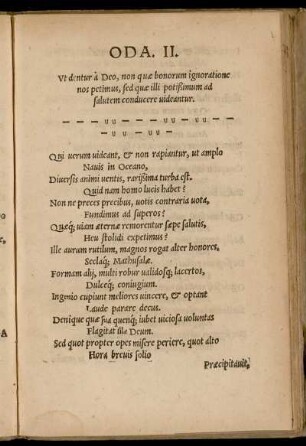 ODA. II.
Vt dentur à Deo, non quæ bonorum ignoratione
nos petimus, sed quæ illi potißimum ad
salutem conducere uideantur.
– – – uu – – uu – – uu – u –
– – uu – uu –
Qui uerum uideant, & non rapiantur, ut amplo
Nauis in Oceano,
Diuersis animi uentis, rarißima turba est.
Quid nam homo lucis habet?
Non ne preces precibus, uotis contraria uota,
Fundimus ad superos?
Quæq; uiam æternæ remorentur sæpe salutis,
Heu stolidi expetimus?
Ille aurum rutilum, magnos rogat alter honores,
Seclaq; Mathusalæ.
Formam alij, multi robur ualidosq; lacertos,
Dulceq; coniugium.
Ingenio cupiunt meliores uincere, & optant
Laude parare decus.
Denique quæ sua quenq; iubet uiciosa uoluntas
Flagitat illa Deum.
Sed quot propter opes misere periere, quot alto
Hora breuis solio
Præcipitauit,